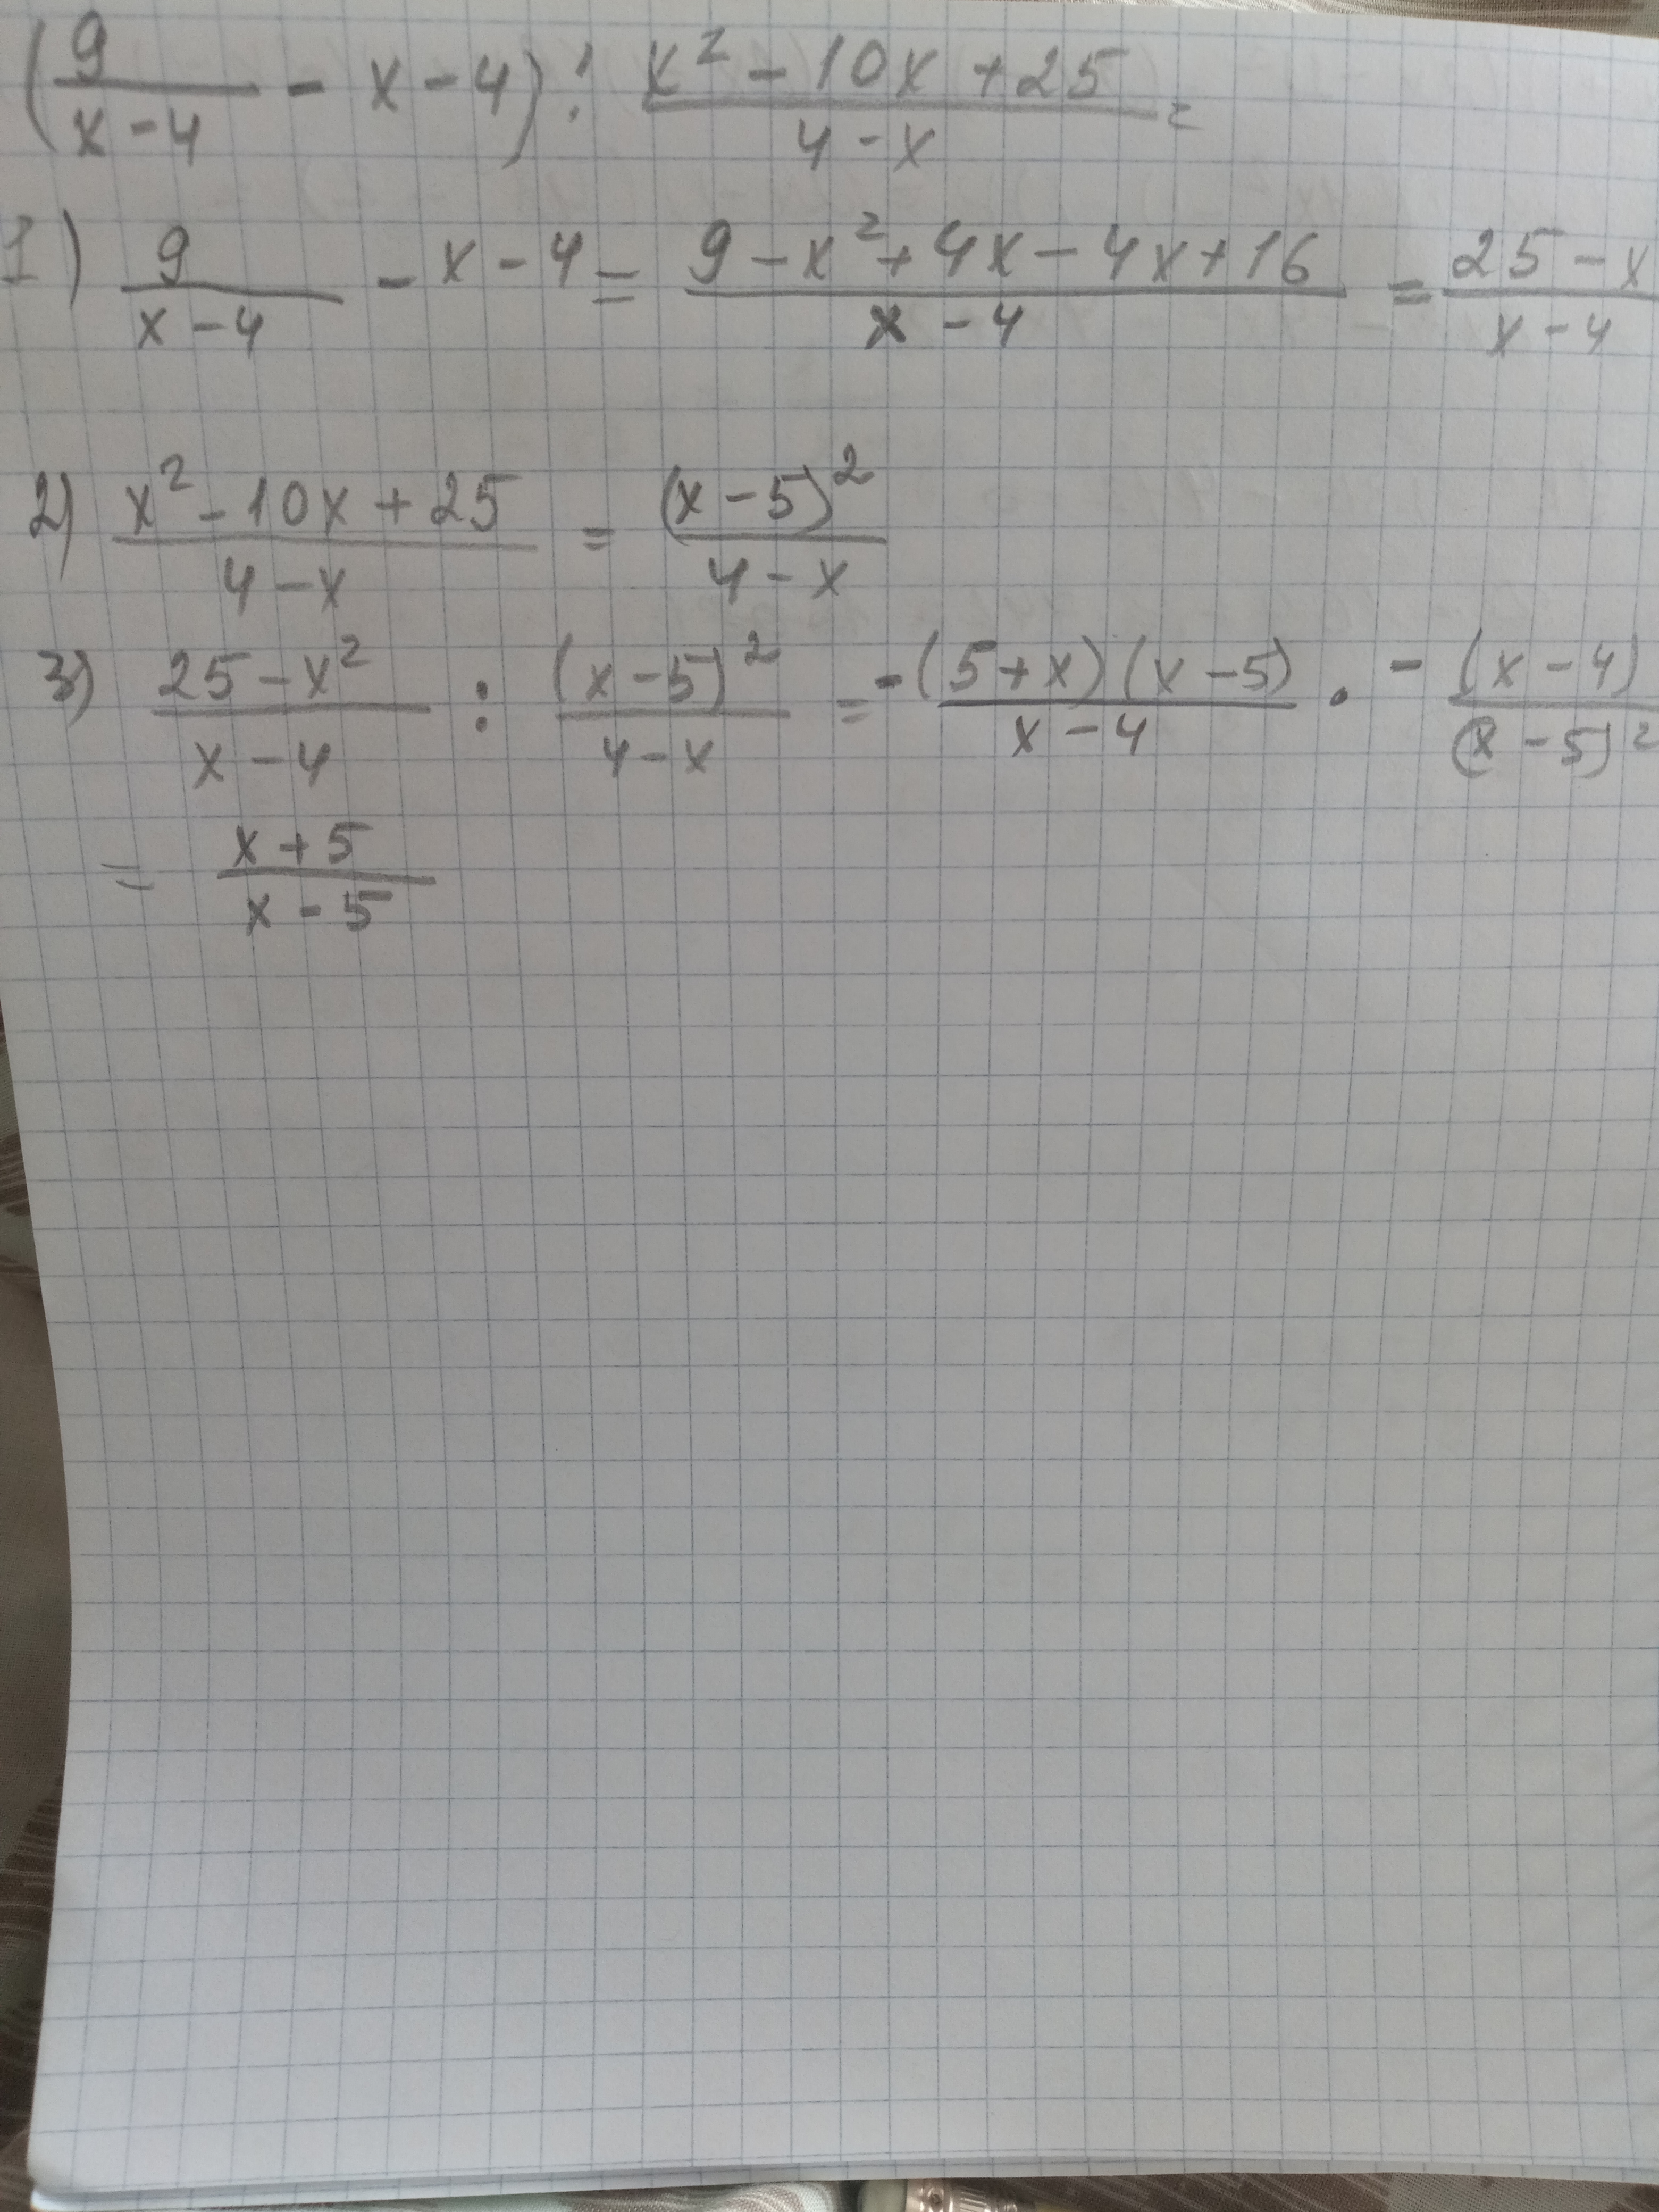 (9/(x-4) - x - 4) : (x² - 10x + 25)/(4 - x) =
1) 9/(x-4) - x - 4 = (9 - x² + 4x - 4x + 16)/(x - 4) = (25 - x)/(x - 4)
2) (x² - 10x + 25)/(4 - x) = (x - 5)²/(4 - x)
3) (25 - x²)/(x - 4) : (x - 5)²/(4 - x) = -(5 + x)(x - 5)/(x - 4) · -(x - 4)/(x - 5)²
= (x + 5)/(x - 5)